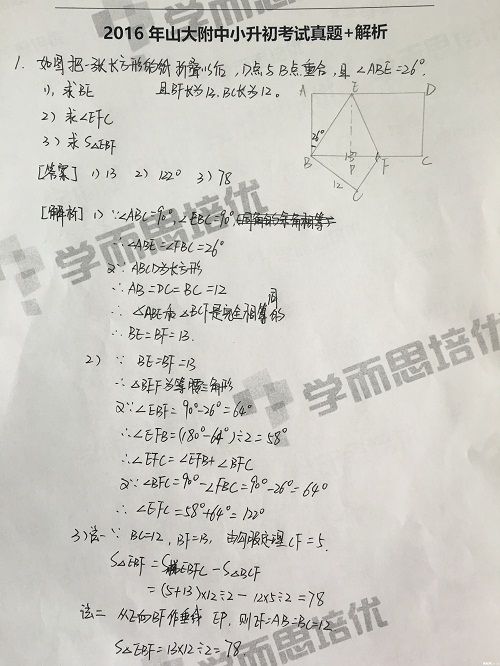 2016年山大附中小升初考试真题+解析
1. 如图把一张长方形的纸折叠以后,D点与B点重合,且∠ABE=26°,
1), 求BE 且BF长为13,BC长为12。
2) 求∠EFC
3) 求S△EBF
A E D
26°
B 13 F C
P
12
C
[答案] 1) 13 2) 122° 3) 78
[解析] 1) ∵∠ABC=90° ∠EBC=90°,(同角的余角相等)
∴∠ABE=∠FBC=26°
又∵ABCD为长方形
∴AB=DC=BC=12
∴ △ABE和△BCF是完全相同的
∴ BE=BF=13.
2) ∵ BE=BF=13
∴△BEF为等腰三角形
又∵∠EBF=90°-26°=64°
∴∠EFB=(180°-64°)÷2=58°
∴∠EFC=∠EFB+∠BFC
又∵∠BFC=90°-∠FBC=90°-26°=64°
∴∠EFC=58°+64°=122°
3) 法一 ∵ BC=12, BF=13, 由勾股定理CF=5.
S△EBF=S梯EBFC-S△BCF
=(5+13)×12÷2-12×5÷2=78
法二 从E向BF作垂线 EP, 则EF=AB=BC=12
S△EBF=13×12÷2=78.
学而思培优
学而思培优
学而思培优
学而思培优